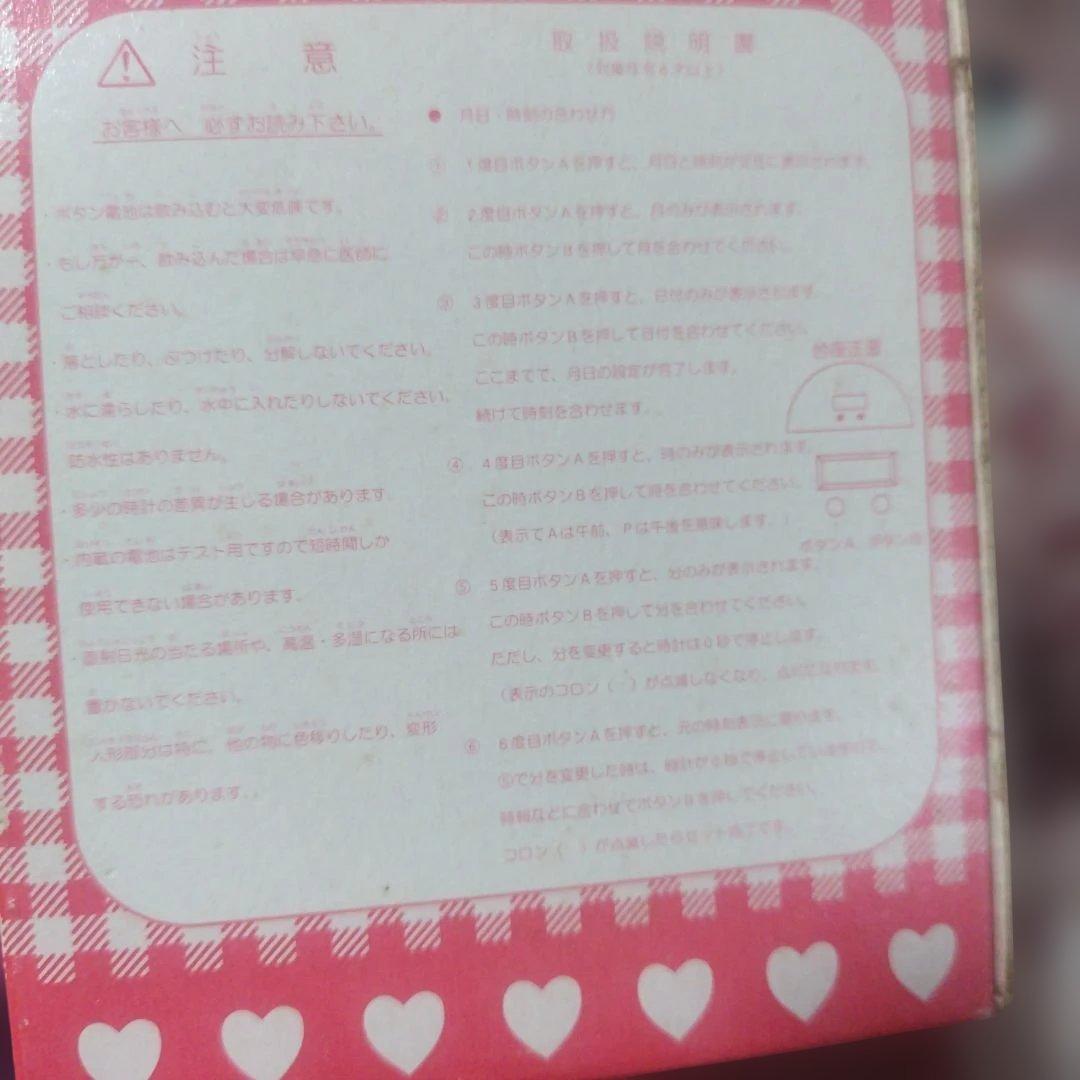 注意
お客様へ 必ずお読み下さい。
・ボタン電池は飲み込むと大変危険です。
・もし万が一、飲み込んだ場合は早急に医師に
ご相談ください。
・落としたり、ぶつけたり、分解しないでください。
・水に濡らしたり、水中に入れたりしないでください。
防水性はありません。
・多少の時計の差異が生じる場合があります。
・内蔵の電池はテスト用ですので短時間しか
使用できない場合があります。
・直射日光の当たる場所や、高温・多湿になる所には
置かないでください。
・人形部分は特に、他の物に色移りしたり、変形
する恐れがあります。
取扱説明書
(対象年令6才以上)
● 月日・時刻の合わせ方
① 1度目ボタンAを押すと、月日と時刻が交互に表示されます。
② 2度目ボタンAを押すと、月のみが表示されます。
この時ボタンBを押して月を合わせてください。
③ 3度目ボタンAを押すと、日付のみが表示されます。
この時ボタンBを押して日付を合わせてください。
ここまでで、月日の設定が完了します。
続けて時刻を合わせます。
④ 4度目ボタンAを押すと、時のみが表示されます。
この時ボタンBを押して時を合わせてください。
(表示でAは午前、Pは午後を意味します。)
⑤ 5度目ボタンAを押すと、分のみが表示されます。
この時ボタンBを押して分を合わせてください。
ただし、分を変更すると時計は0秒で停止します。
(表示のコロン(:)が点滅しなくなり、点灯になります。)
⑥ 6度目ボタンAを押すと、元の時刻表示に戻ります。
⑤で分を変更した時は、時計が0秒で停止していますので、
時報などに合わせてボタンBを押してください。
コロン(:)が点滅したらセット完了です。
台座正面
ボタンA ボタンB